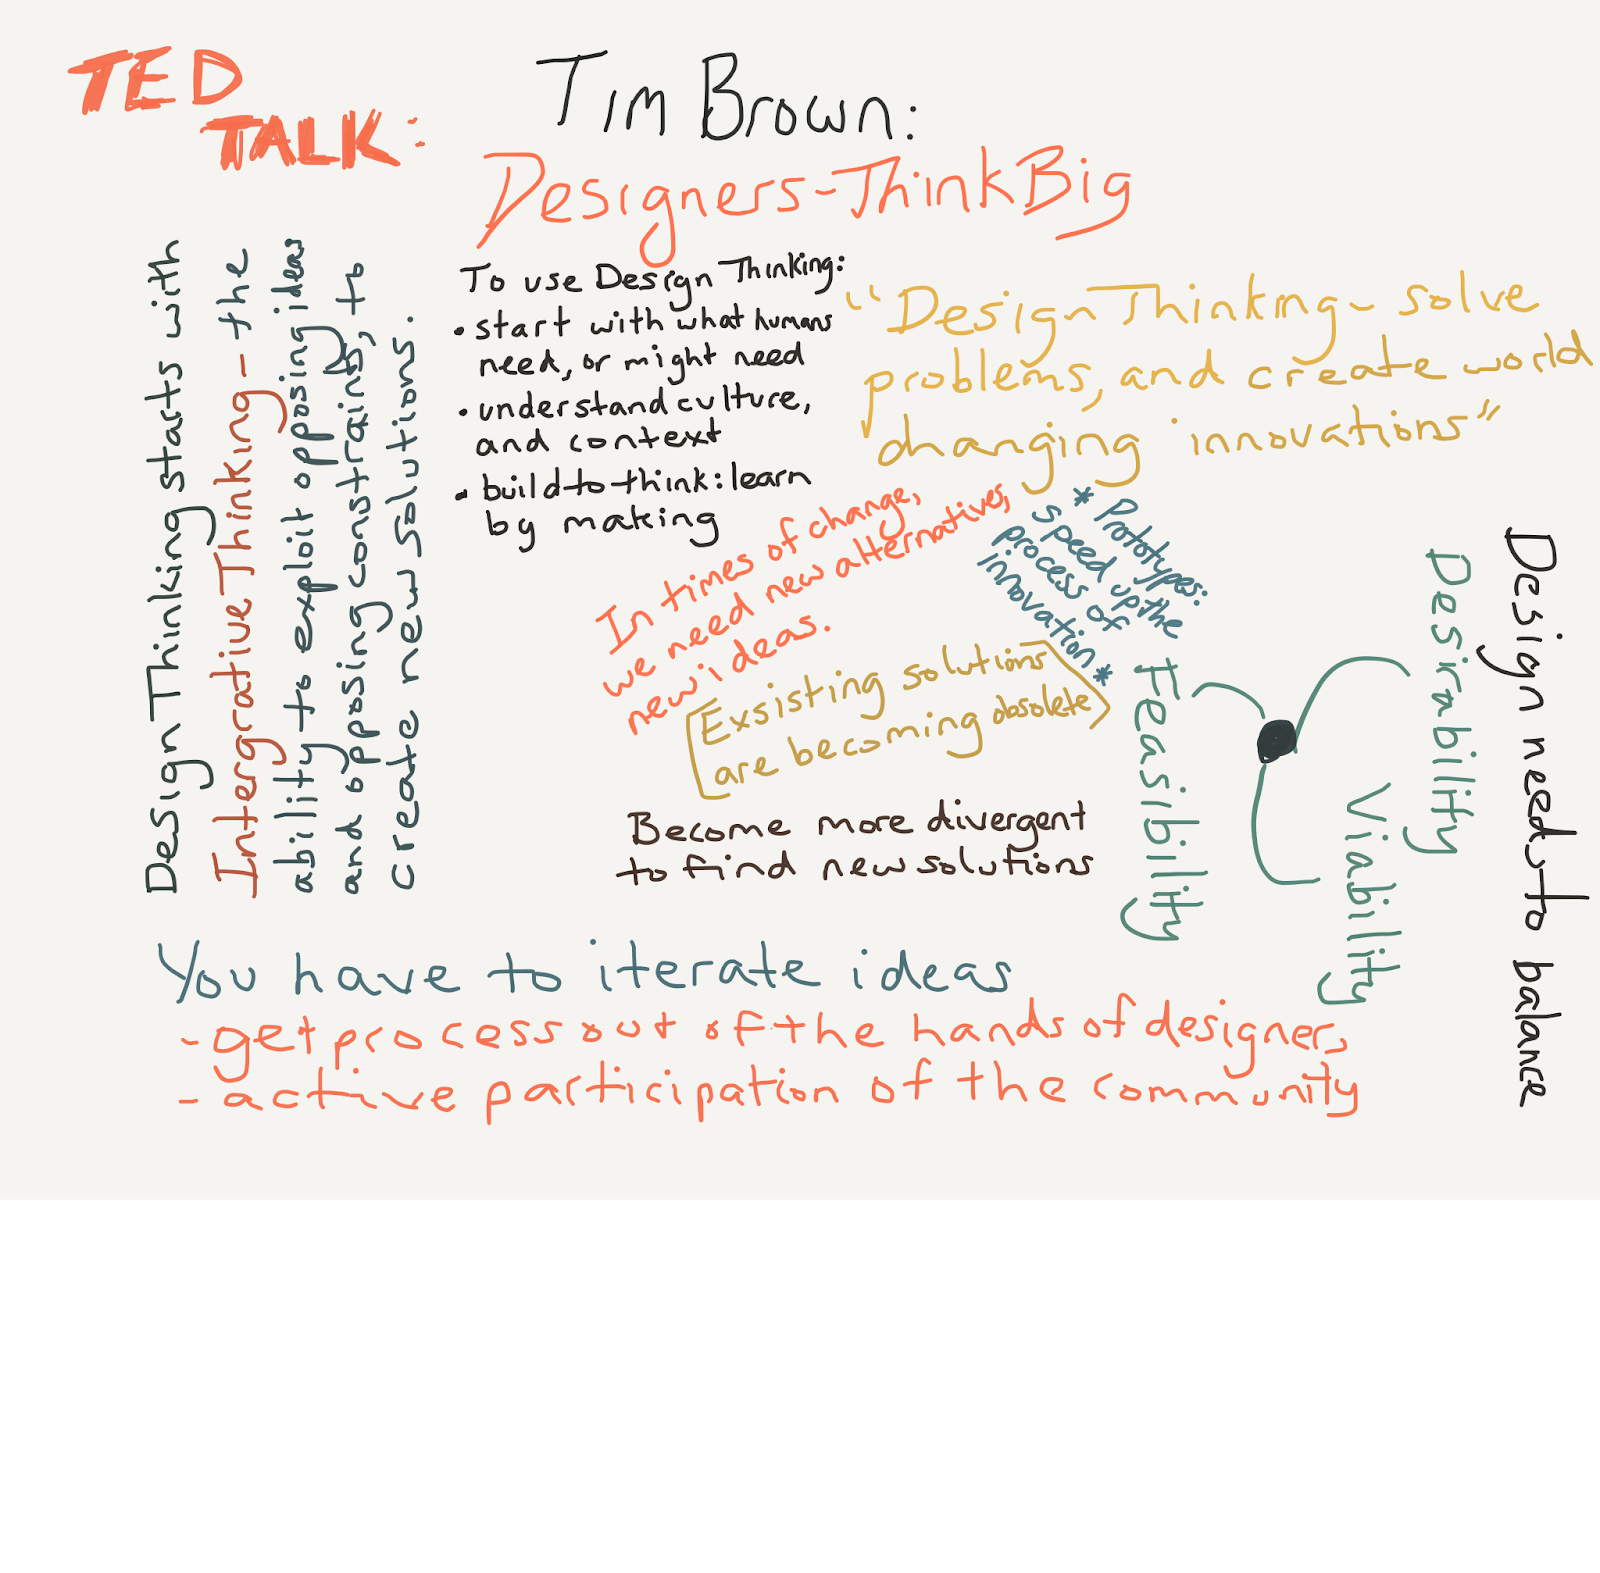 TED
TALK:
Tim Brown:
Designers-Think Big
Design Thinking starts with
Intergrative Thinking - the
ability to exploit opposing ideas
and opposing constraints, to
create new solutions.
To use Design Thinking:
• start with what humans
need, or might need
• understand culture,
and context
• build to think: learn
by making
"Design Thinking - solve
problems, and create world
changing innovations"
In times of change,
we need new alternatives,
new ideas.
* Prototypes:
speed up the
process of
innovation *
[Exsisting solutions
are becoming obsolete]
Become more divergent
to find new solutions
Design needs to balance
Desirability
Viability
Feasibility
You have to iterate ideas
- get process out of the hands of designer,
- active participation of the community